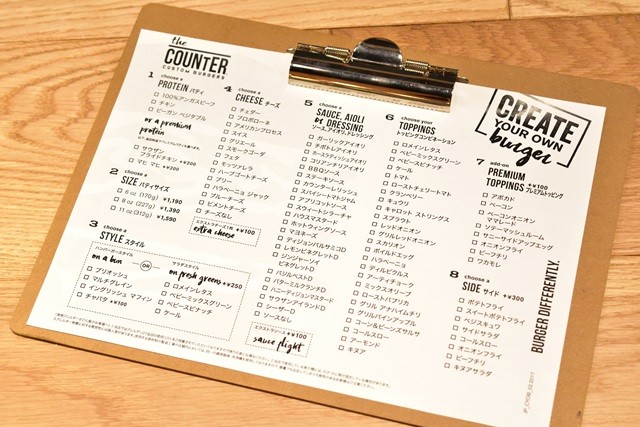 the
COUNTER
CUSTOM BURGERS
1 choose a
PROTEIN パティ
100%アンガスビーフ
チキン
ビーガン ベジタブル
or a premium
protein
サウザン
フライドチキン +¥200
マヒ マヒ +¥200
2 choose a
SIZE パティサイズ
6 oz (170g) ¥1,190
8 oz (227g) ¥1,390
11 oz (312g) ¥1,590
3 choose a
STYLE スタイル
ハンバーガースタイル
on a bun
ブリオッシュ
マルチグレイン
イングリッシュ マフィン
チャバタ +¥100
OR
サラダスタイル
on fresh greens +¥250
ロメインレタス
ベビーミックスグリーン
ベビースピナッチ
ケール
4 choose a
CHEESE チーズ
チェダー
プロボローネ
アメリカンプロセス
スイス
グリエール
スモークゴーダ
フェタ
モッツアレラ
ハーブゴートチーズ
ブリー
ハラペーニョ ジャック
ブルーチーズ
ピメントチーズ
チーズなし
エクストラチーズ1枚 +¥100
extra cheese
5 choose a
SAUCE, AIOLI
or DRESSING
ソース,アイオリ,ドレッシング
ガーリックアイオリ
チポトレアイオリ
ホースラディッシュアイオリ
コリアンダアイオリ
BBQソース
ステーキソース
カウンターレリッシュ
スパイシートマトジャム
アプリコットソース
スウィートシラーチャ
ハウスマスタード
ホットウィングソース
マヨネーズ
ディジョンバルサミコD
レモンビネグレットD
ジンジャーソイ
ビネグレットD
バジルペストD
バターミルクランチD
ハニーディジョンマスタード
サウザンアイランドD
シーザーD
ソースなし
エクストラソース +¥100
sauce flight
6 choose your
TOPPINGS
トッピングコンビネーション
ロメインレタス
ベビーミックスグリーン
ベビースピナッチ
ケール
トマト
ローストチェリートマト
クランベリー
キュウリ
キャロット ストリングス
スプラウト
レッドオニオン
グリルドオニオン
スカリオン
ボイルドエッグ
ハラペーニョ
ディルピクルス
アーティチョーク
ミックスオリーブ
ローストパプリカ
グリル アナハイムチリ
グリルパインアップル
コーン&ビーンズサルサ
コールスロー
アーモンド
キヌア
CREATE
YOUR OWN
burger
7 add-on
PREMIUM
TOPPINGS +¥100
プレミアムトッピング
アボカド
ベーコン
ベーコンオニオン
マーマレード
ソテーマッシュルーム
サニーサイドアップエッグ
オニオンフライ
ビーフチリ
ワカモレ
8 choose a
SIDE サイド +¥300
ポテトフライ
スイートポテトフライ
ベジスキュワ
サイドサラダ
コールスロー
オニオンフライ
ビーフチリ
キヌアサラダ
BURGER DIFFERENTLY.